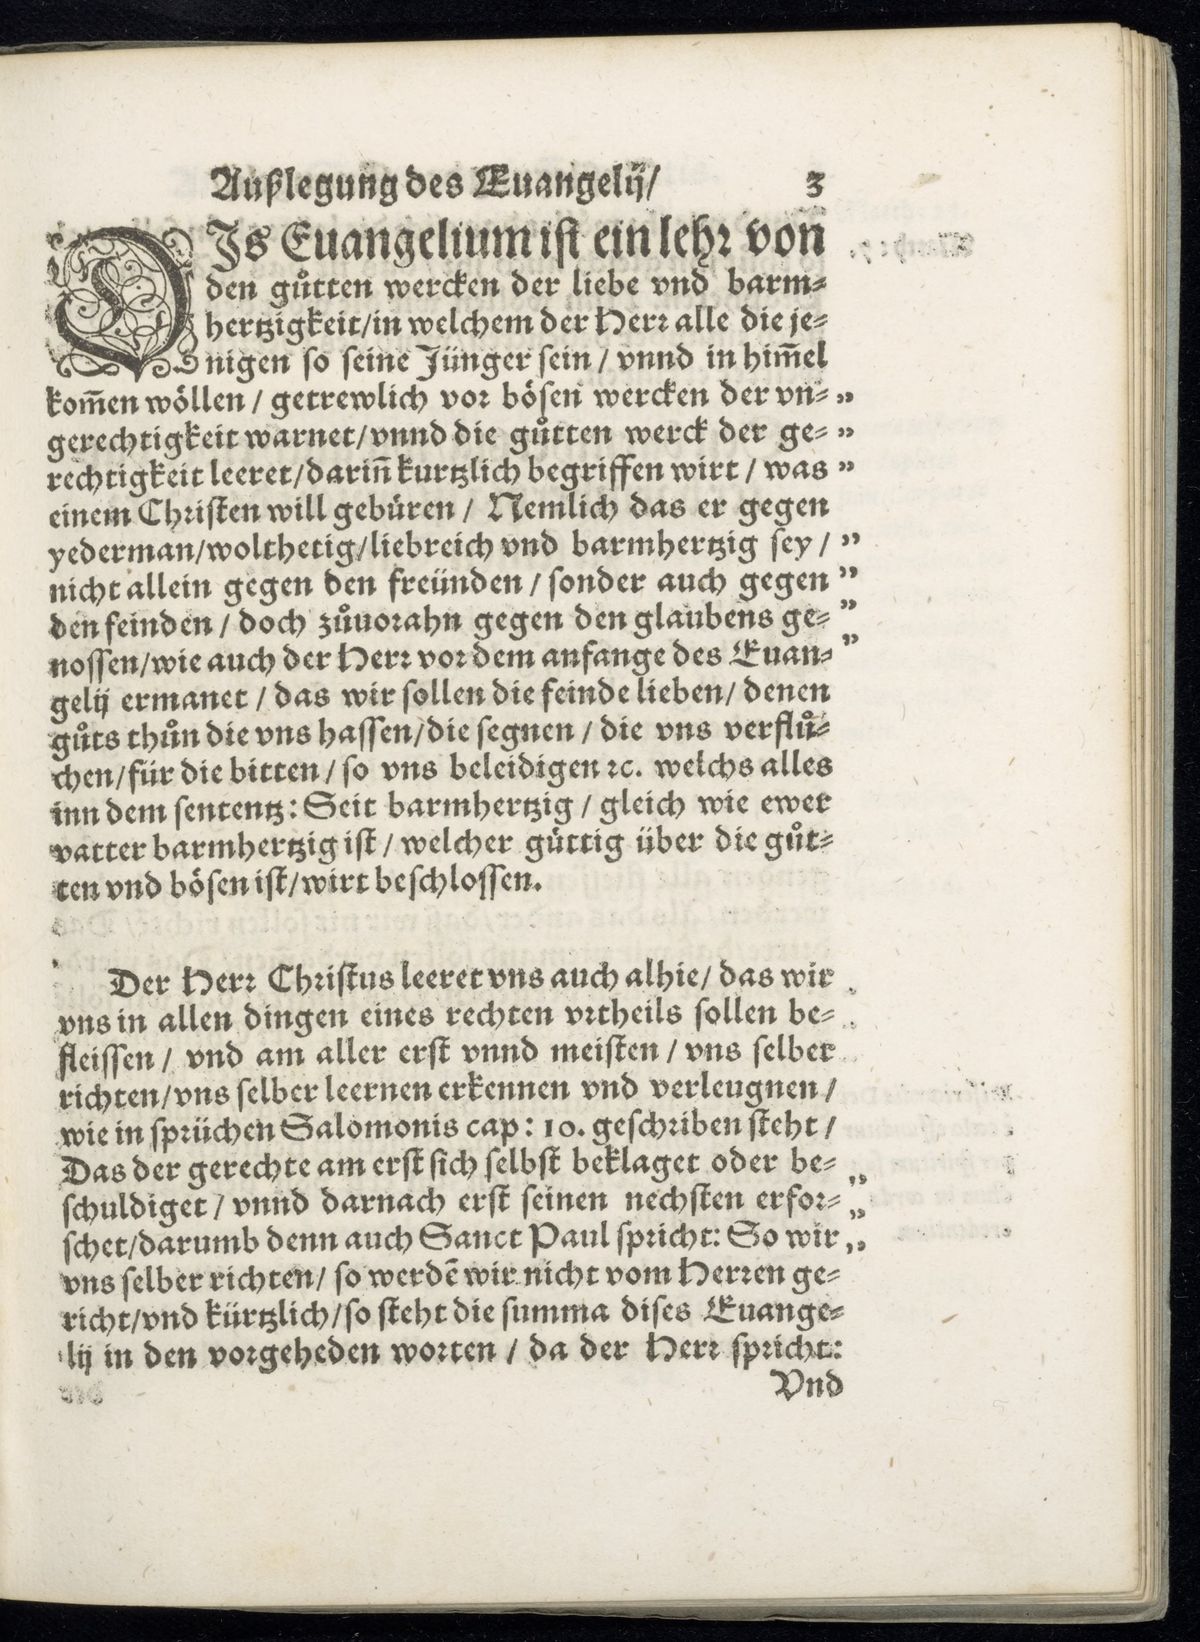 Außlegung des Euangelij/ 3
DJs Euangelium ist ein lehr von
den gůtten wercken der liebe vnd barm-
hertzigkeit/in welchem der Herr alle die je-
nigen so seine Jünger sein / vnnd in him̄el
kom̄en wöllen / getrewlich vor bösen wercken der vn- „
gerechtigkeit warnet/vnnd die gůtten werck der ge- „
rechtigkeit leeret/darin̄ kurtzlich begriffen wirt / was „
einem Christen will gebüren / Nemlich das er gegen
yederman/wolthetig/liebreich vnd barmhertzig sey / „
nicht allein gegen den freünden / sonder auch gegen „
den feinden / doch zůuorahn gegen den glaubens ge- „
nossen/wie auch der Herr vor dem anfange des Euan- „
gelij ermanet / das wir sollen die feinde lieben/ denen
gůts thůn die vns hassen/die segnen / die vns verflů-
chen/für die bitten / so vns beleidigen ꝛc. welchs alles
inn dem sententz: Seit barmhertzig / gleich wie ewer
vatter barmhertzig ist / welcher güttig über die gůt-
ten vnd bösen ist/wirt beschlossen.
Der Herr Christus leeret vns auch alhie/ das wir
vns in allen dingen eines rechten vrtheils sollen be-
fleissen / vnd am aller erst vnnd meisten / vns selber
richten/vns selber leernen erkennen vnd verleugnen /
wie in sprüchen Salomonis cap: 10. geschriben steht /
Das der gerechte am erst sich selbst beklaget oder be- „
schuldiget / vnnd darnach erst seinen nechsten erfor- „
schet/darumb denn auch Sanct Paul spricht: So wir „
vns selber richten/ so werdē wir nicht vom Herren ge-
richt/vnd kürtzlich/so steht die summa dises Euange-
lij in den vorgeheden worten / da der Herr spricht:
Vnd